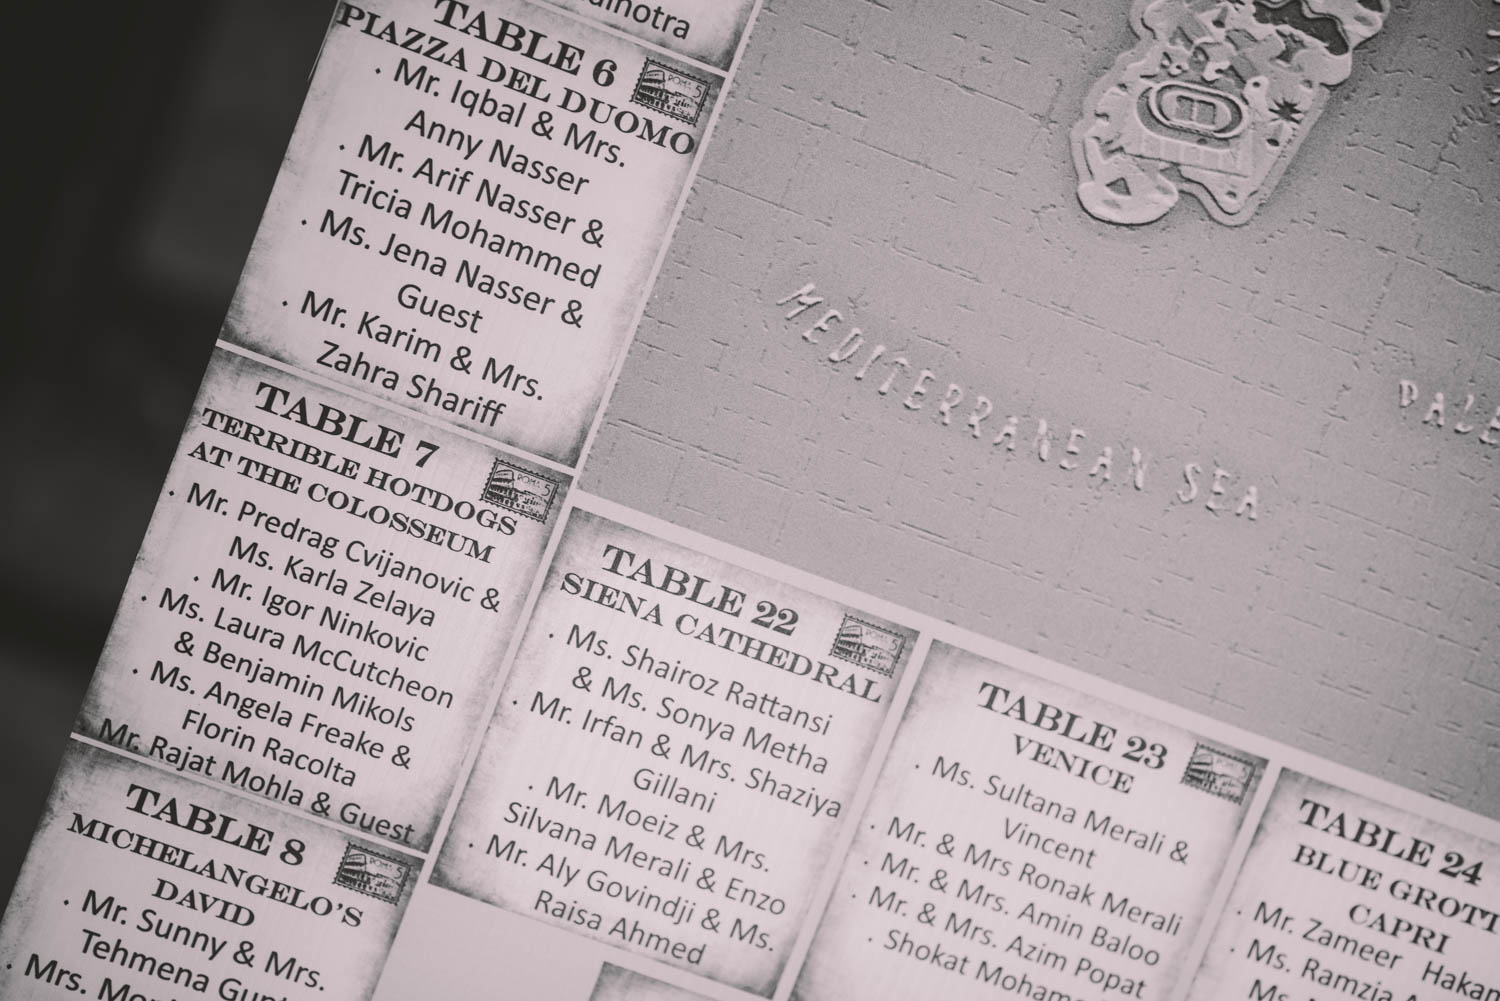 TABLE 6
PIAZZA DEL DUOMO
· Mr. Iqbal & Mrs.
Anny Nasser
· Mr. Arif Nasser &
Tricia Mohammed
· Ms. Jena Nasser &
Guest
· Mr. Karim & Mrs.
Zahra Shariff
TABLE 7
TERRIBLE HOTDOGS
AT THE COLOSSEUM
· Mr. Predrag Cvijanovic &
Ms. Karla Zelaya
· Mr. Igor Ninkovic
· Ms. Laura McCutcheon
& Benjamin Mikols
· Ms. Angela Freake &
Florin Racolta
Mr. Rajat Mohla & Guest
TABLE 8
MICHELANGELO'S
DAVID
· Mr. Sunny & Mrs.
Tehmena
· Mrs.
MEDITERRANEAN SEA
TABLE 22
SIENA CATHEDRAL
· Ms. Shairoz Rattansi
& Ms. Sonya Metha
· Mr. Irfan & Mrs. Shaziya
Gillani
· Mr. Moeiz & Mrs.
Silvana Merali & Enzo
· Mr. Aly Govindji & Ms.
Raisa Ahmed
TABLE 23
VENICE
· Ms. Sultana Merali &
Vincent
· Mr. & Mrs Ronak Merali
· Mr. & Mrs. Amin Baloo
· Mr. & Mrs. Azim Popat
· Shokat
TABLE 24
BLUE
CAPRI
· Mr. Zameer
· Ms. Ramzia
Ms.
ROMA 5
ROMA 5
ROMA 5
ROMA 5